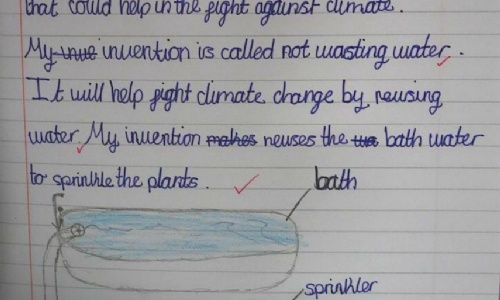 that could help in the fight against climate.
My invention is called not wasting water.
It will help fight climate change by reusing
water. My invention makes reuses the bath water
to sprinkle the plants.
bath
sprinkler